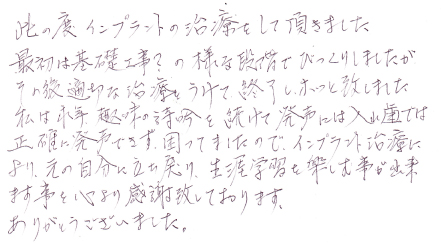 此の度インプラントの治療をして頂きました
最初は基礎工事？の様な段階でびっくりしましたが
その後適切な治療をうけて終了し、ホッと致しました
私は永年趣味の詩吟を続けて発声には入れ歯では
正確に発声できず、困ってましたので、インプラント治療に
より、元の自分に立ち戻り、生涯学習を楽しむ事が出来
ます事を心より感謝致しております。
ありがとうございました。